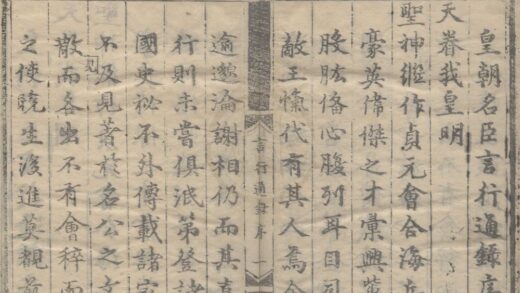 皇朝名臣言行通錄序
天眷我皇明
聖神繼作貞元會合海
豪英偉傑之才彙興
股肱俻心腹列耳目司
敵王愾代有其人焉
言行通錄序 一
逾邈淪謝相仍而其言
行則未嘗俱泯第登諸
國史祕不外傳載諸家
不及見著於名公之文
見
散而各出不有會稡而
之使晚生後進莫覩